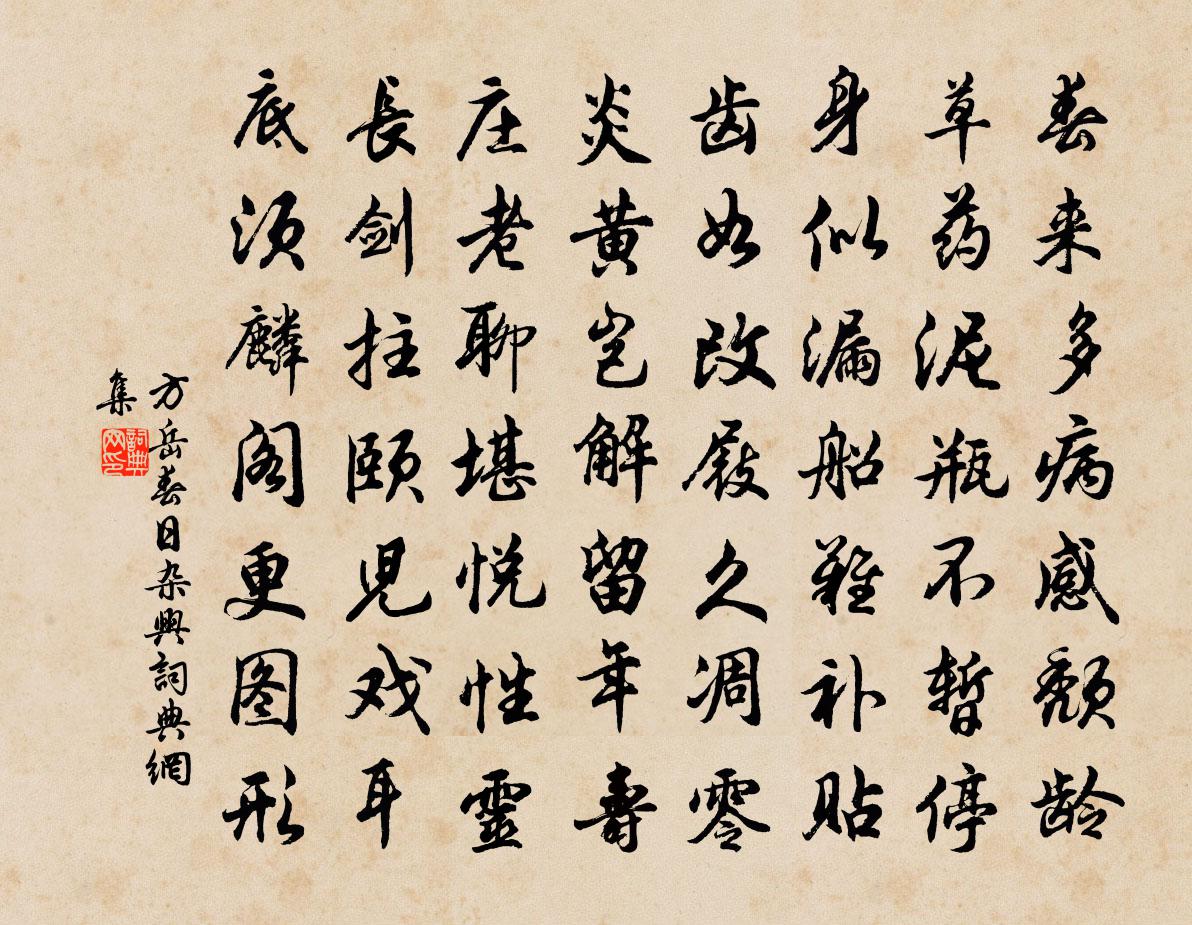 春来多病感颓龄
草药泥瓶不暂停
身似漏船难补贴
齿如改屐久凋零
炎黄岂解留年寿
庄老聊堪悦性靈
長剑拄颐児戏耳
底须麟阁更图形
方岳春日杂興詞典網
集
詞典网印